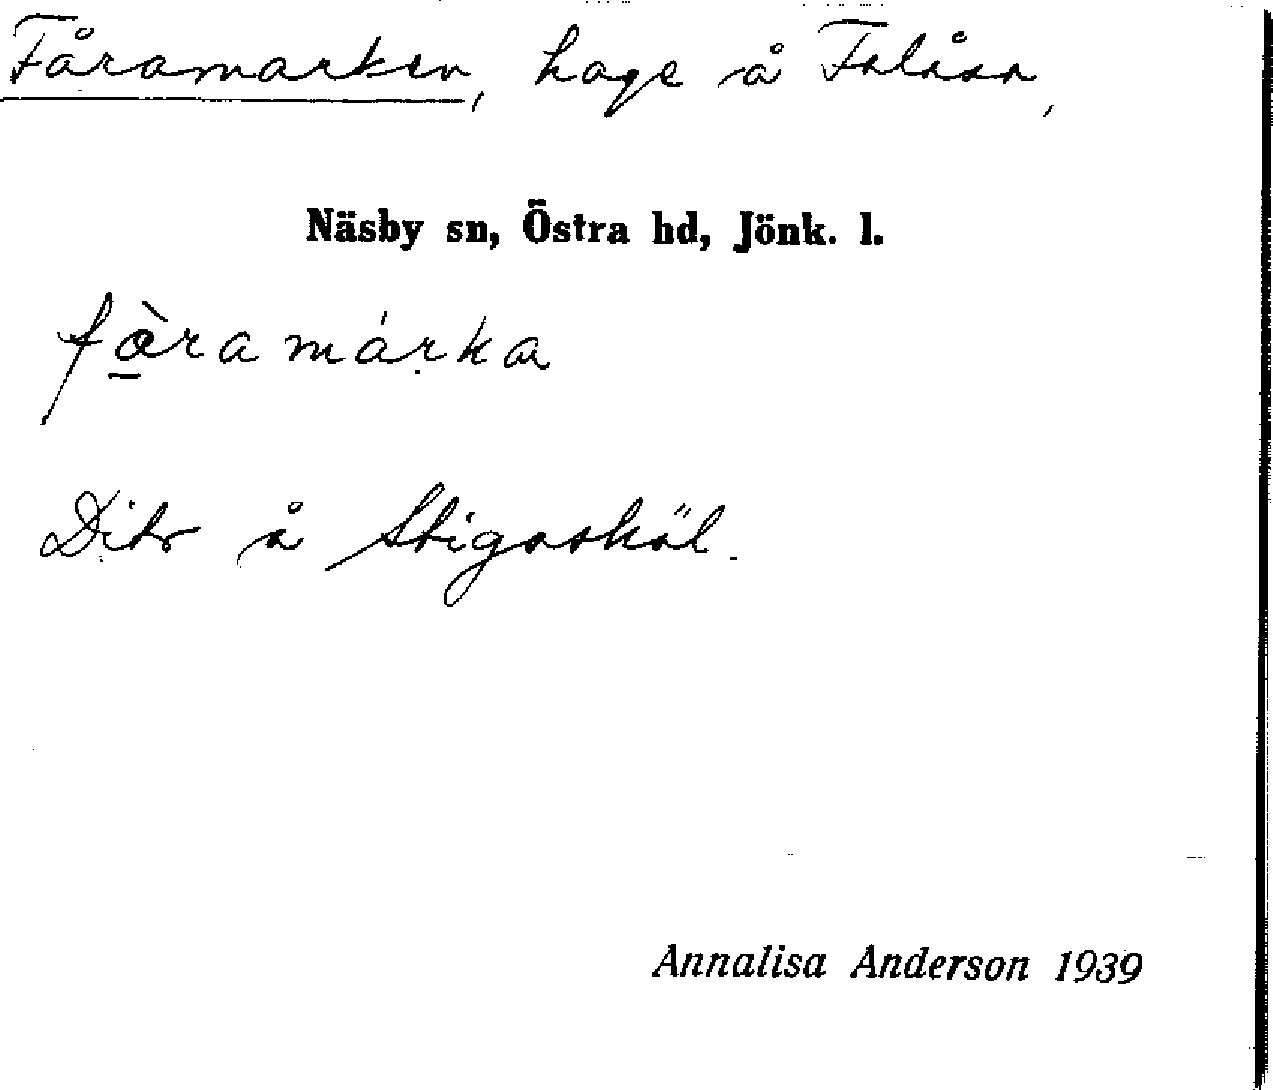 Fåramarken, hage å Falåsa,
Näsby sn, Östra hd, Jönk. l.
fàramárka
Dito å Stigaskäl.
Annalisa Anderson 1939